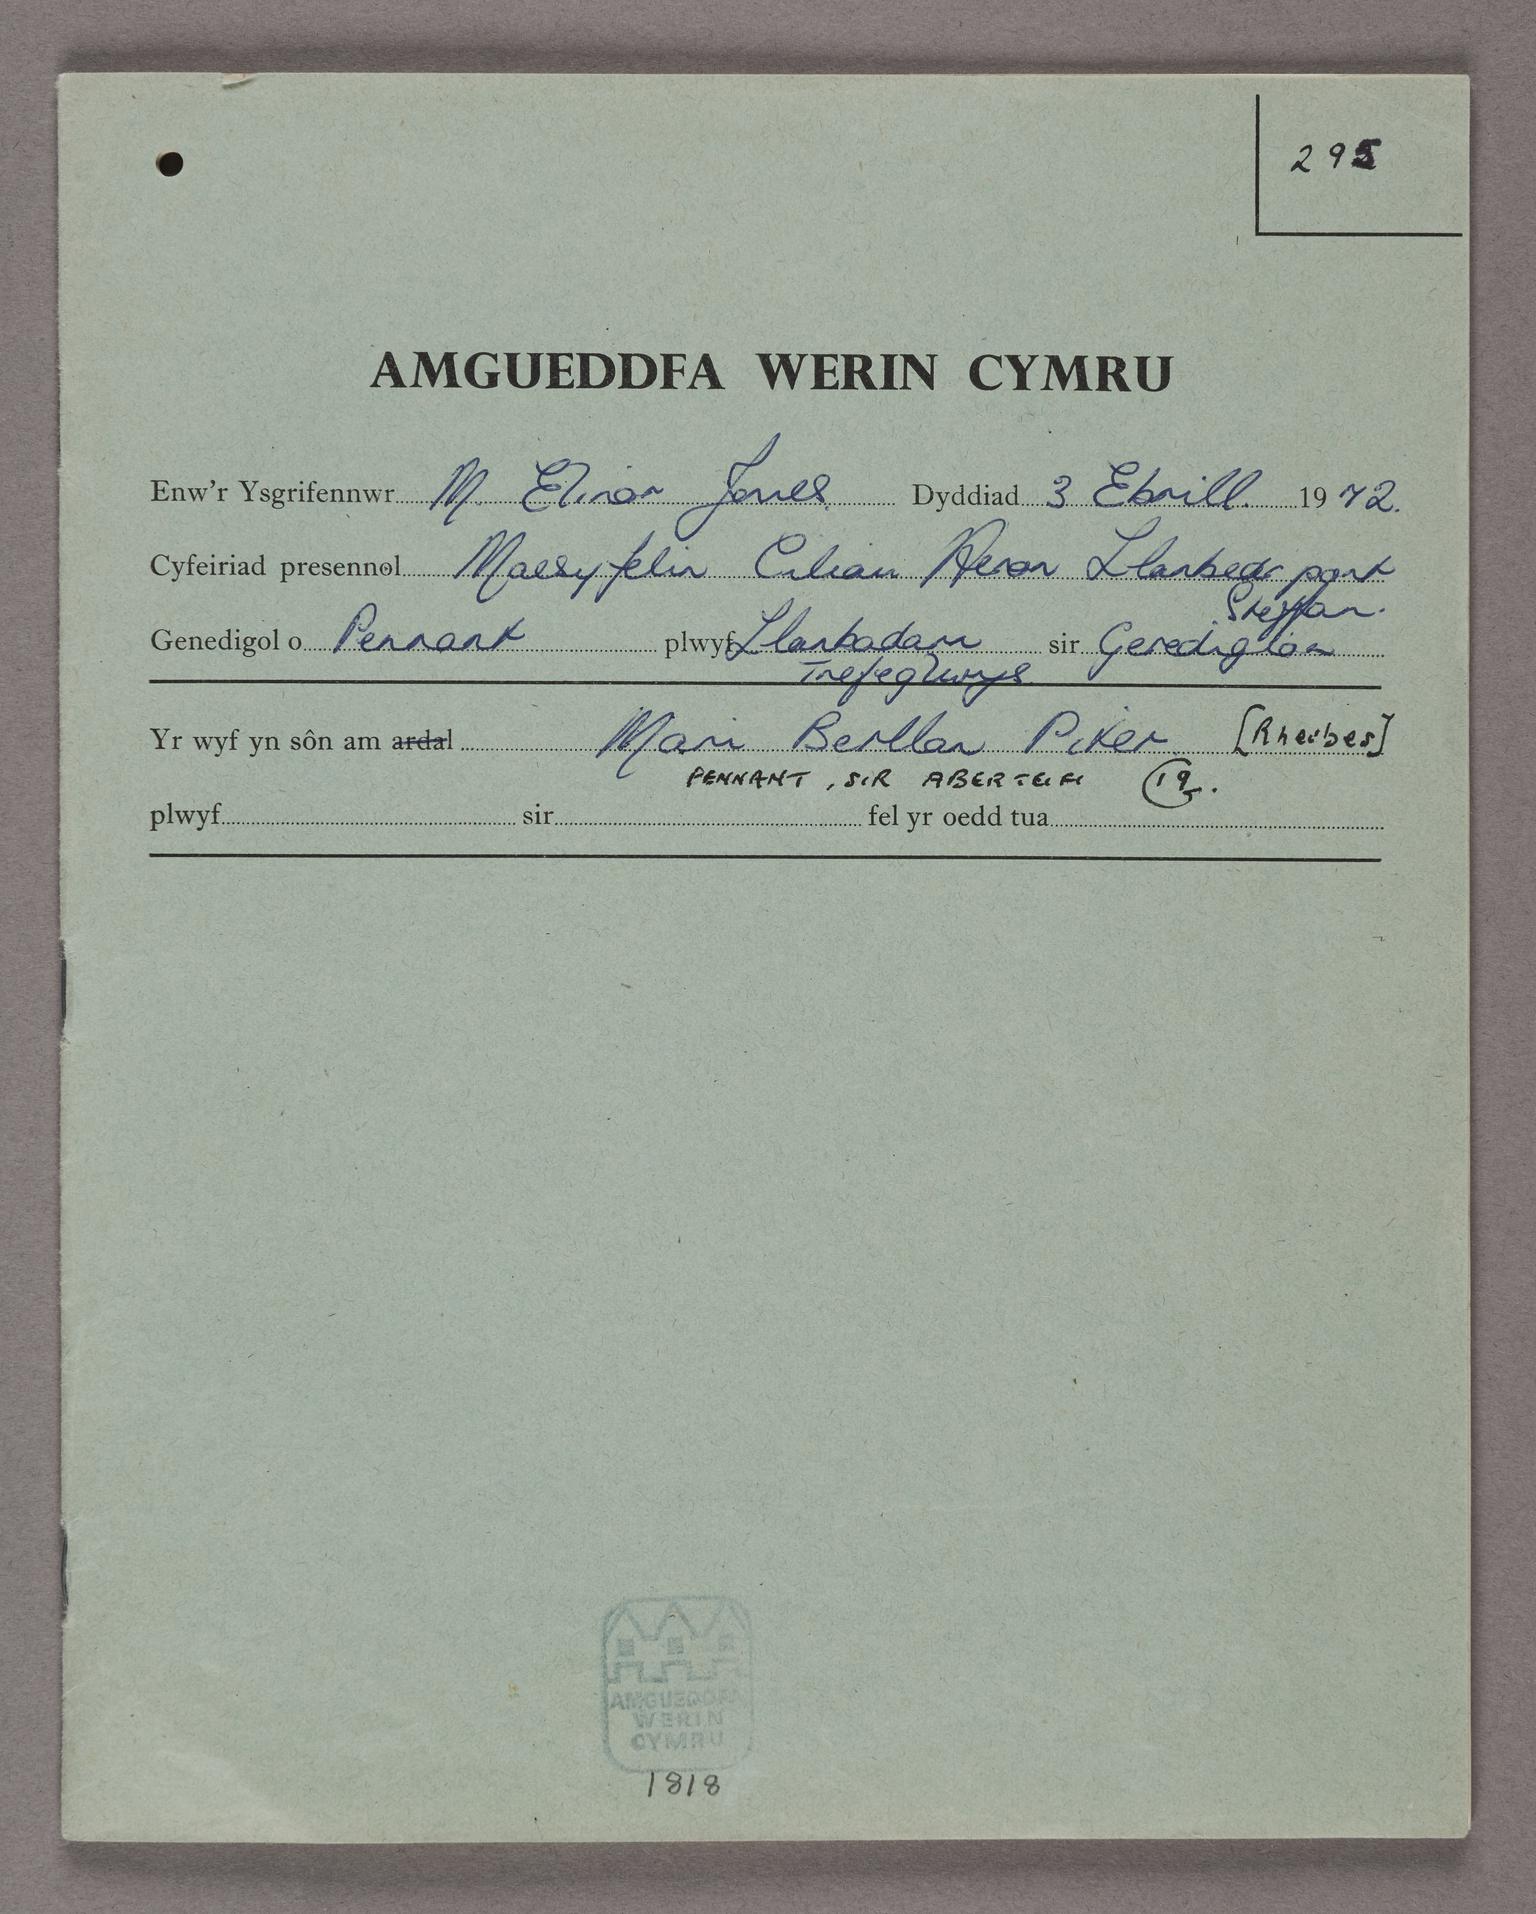 295
AMGUEDDFA WERIN CYMRU
Enw'r Ysgrifennwr M. Elinor Jones Dyddiad 3 Ebrill 1972.
Cyfeiriad presennol Maesyfelin Cilian Aeron Llanbedr pont
Steffan.
Genedigol o Pennant plwyf Llanbadarn sir Geredigion
Trefeglwys
Yr wyf yn sôn am ardal Mari Berllan Piter [Rheibes]
PENNANT, SIR ABERTEIFI
plwyf sir fel yr oedd tua
AMGUEDDFA
WERIN
CYMRU
1818